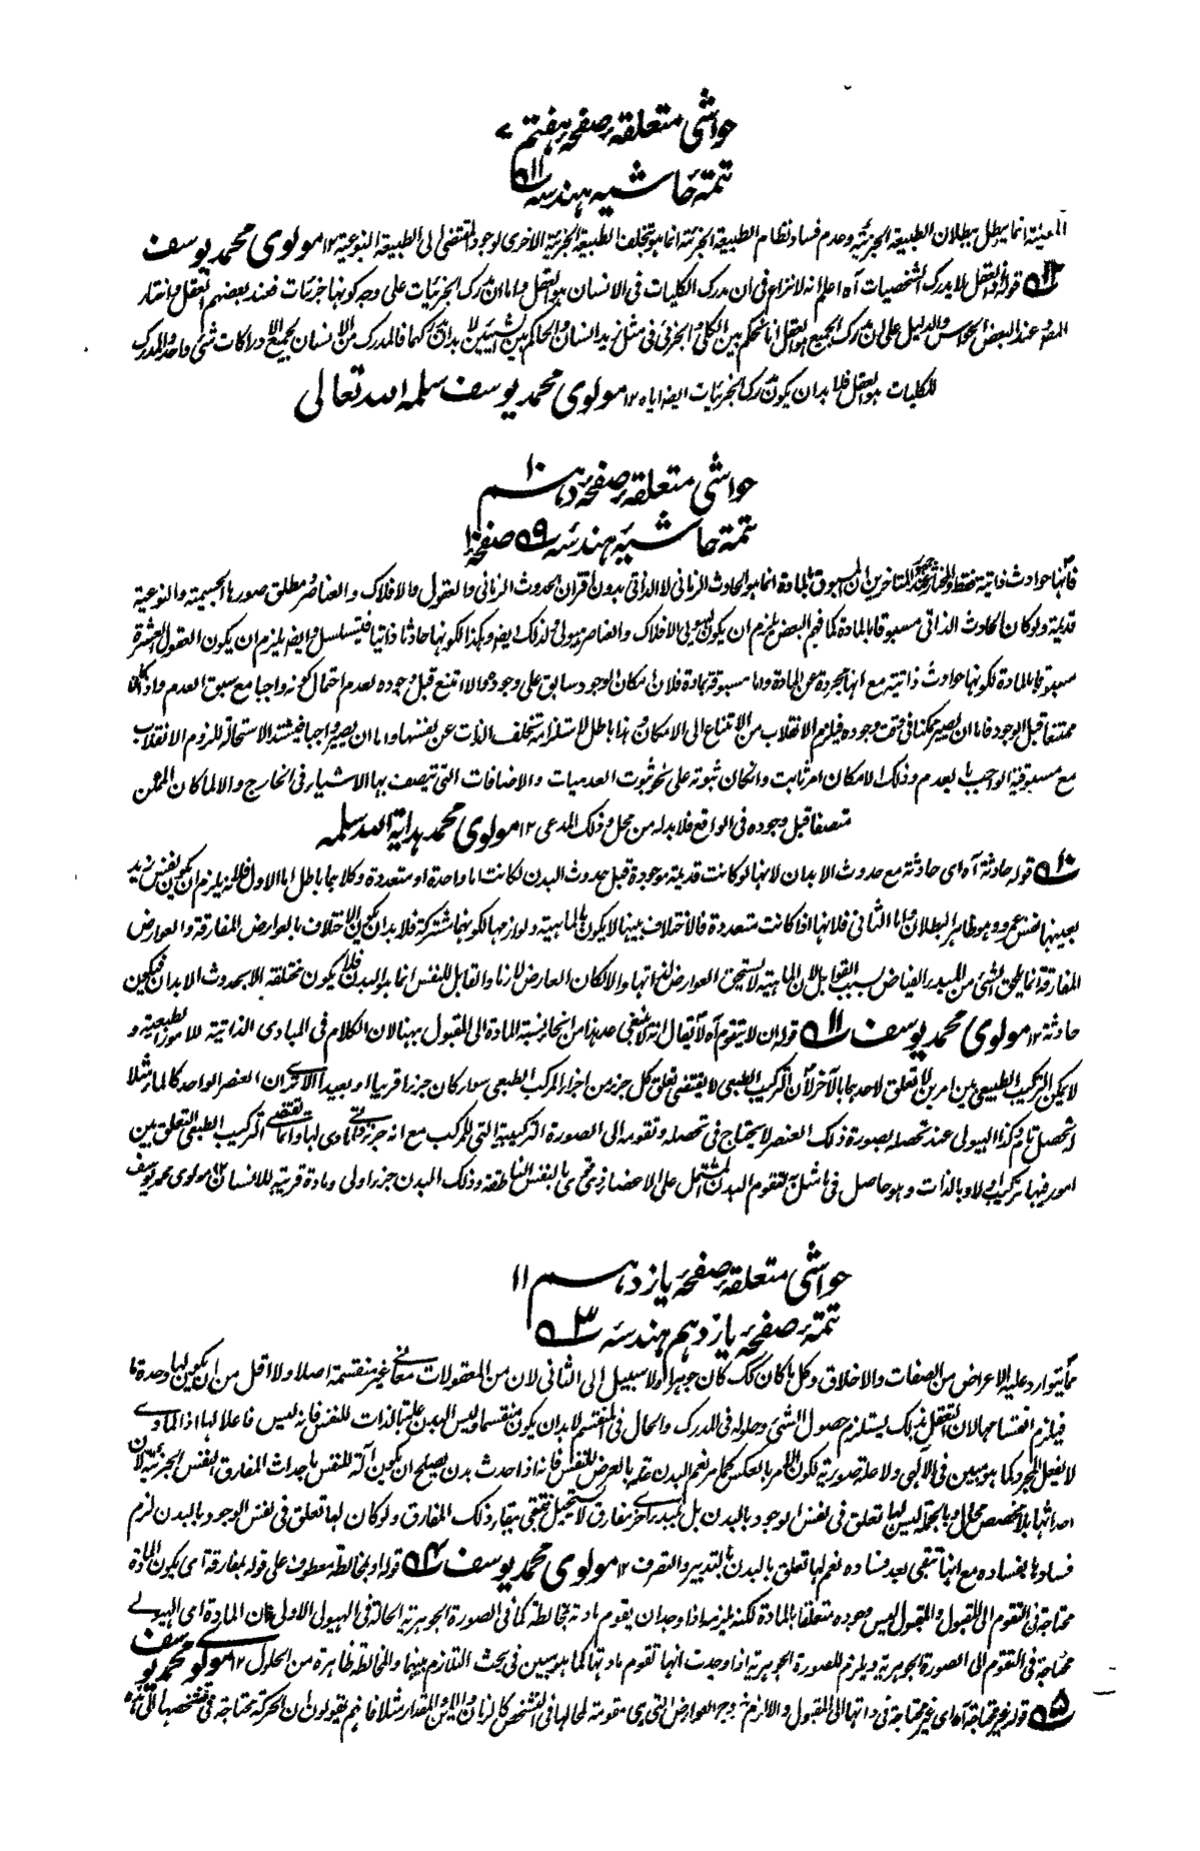 حواشی متعلقہ صفحہ ہفتم ۷
تتمۃ حاشیہ ہندسہ ۱۱
المعینۃ انما یبطل ببطلان الطبیعۃ الجزئیۃ وعدم فساد نظام الطبیعۃ الجزئیۃ انما ہو تخلف الطبیعۃ الجزئیۃ الاخری لوجود المقتضی الی الطبیعۃ النوعیۃ ۱۲ مولوی محمد یوسف
۱۲ قولہ فالعقل لا یدرک الشخصیات آہ اعلم انہ لا نزاع فی ان مدرک الکلیات فی الانسان ہو العقل واما ان مدرک الجزئیات علی وجہ کونہا جزئیات فعند بعضہم العقل واختار
المص وعند البعض الحواس والدلیل علی ان مدرک الجمیع ہو العقل انا نحکم بین الکلی والجزئی فی مثل زید انسان والحاکم بین الشیئین لا بد ان یدرکہما فالمدرک من الانسان بجمیع الادراکات شئ واحد والمدرک
للکلیات ہو العقل فلا بد ان یکون مدرک الجزئیات ایضا ایاہ ۱۲ مولوی محمد یوسف سلمہ اللہ تعالی
حواشی متعلقہ صفحہ دہم ۱۰
تتمۃ حاشیہ ہندسہ ۹ صفحہ ۱۰
فانہا حوادث ذاتیۃ فقط والمختار عند المتاخرین ان المسبوق بالمادۃ انما ہو الحادث الزمانی لا الذاتی بدون اقتران الحدوث الزمانی والعقول والافلاک والعناصر مطلق صورہا الجسمیۃ والنوعیۃ
قدیمۃ ولو کان الحادث الذاتی مسبوقا بالمادۃ کما فہم البعض یلزم ان یکون لہیولی الافلاک والعناصر ہیولی ولذلک ایضا وہکذا لکونہا حادثا ذاتیا فیتسلسل وایضا یلزم ان یکون العقول العشرۃ
مسبوقۃ بالمادۃ لکونہا حوادث ذاتیۃ مع انہا مجردۃ عن المادۃ واما مسبوقۃ بمادۃ فلان امکان الوجود سابق علی وجودہ والا امتنع قبل وجودہ لعدم احتمال کونہ واجبا مع سبق العدم واذا کان
ممتنعا قبل الوجود فاما ان یصیر ممکنا فی وقت وجودہ فیلزم الانقلاب من الامتناع الی الامکان وہذا باطل لاستلزامہ تخلف الذات عن نفسہا واما ان یصیر واجبا فیشتد الاستحالۃ للزوم الانقلاب
مع مسبوقیۃ الواجب بالعدم وذلک الامکان امر ثابت وان کان ثبوتہ علی نحو ثبوت العدمیات والاضافات التی تتصف بہا الاشیاء فی الخارج والا لما کان الممکن
متصفا قبل وجودہ فی الواقع فلا بد لہ من محل وذلک المدعی ۱۲ مولوی محمد ہدایۃ اللہ سلمہ
۱۰ قولہ حادثۃ آہ ای حادثۃ مع حدوث الابدان لانہا لو کانت قدیمۃ موجودۃ قبل حدوث البدن لکانت اما واحدۃ او متعددۃ وکلاہما باطل اما الاول فلانہ یلزم ان یکون نفس زید
بعینہا نفس عمرو وہو ظاہر البطلان واما الثانی فلانہا اذا کانت متعددۃ فالاختلاف بینہا لا یکون بالماہیۃ ولوازمہا لکونہا مشترکۃ فلا بد ان یکون الاختلاف بالعوارض المفارقۃ والعوارض
المفارقۃ انما یلحق الشئ من المبدء الفیاض بسبب القوابل لان الماہیۃ لا یستحق العوارض لذاتہا والا لکان العارض لازما والقابل للنفس انما ہو البدن فلا یکون مختلفۃ الا بحدوث الابدان فیکون
حادثۃ ۱۲ مولوی محمد یوسف ۱۱ قولہ ان لا یتقوم آہ لا یقال انہ لا ینبغی عدہا من انحاء نسبۃ المادۃ الی المقبول ہہنا لان الکلام فی المبادی الذاتیۃ للامور الطبیعیۃ و
لا یمکن الترکیب الطبیعی بین امرین لا تعلق لاحدہما بالآخر لان الترکیب الطبیعی لا یقتضی تعلق کل جزء من اجزاء المرکب الطبیعی سواء کان جزءا قریبا او بعیدا الا تری ان العنصر الواحد کالماء مثلا
لا یحصل تارۃ کذا الہیولی عند تحصلہ بصورۃ ذلک العنصر لا یحتاج فی تحصلہ وتقومہ الی الصورۃ الترکیبیۃ التی للمرکب مع انہ جزء مادی لہا وانما یقتضی الترکیب الطبیعی التعلق بین
امور فیہا ترکیب اولا وبالذات وہو حاصل فی ما مثل بہ لتقوم البدن المشتمل علی الاعضاء بالنفس الناطقۃ وذلک البدن جزء اولی ومادۃ قریبۃ للانسان ۱۲ مولوی محمد یوسف
حواشی متعلقہ صفحہ یازدہم ۱۱
تتمۃ صفحہ یازدہم ہندسہ ۳
مما یتوارد علیہ الاعراض من الصفات والاخلاق وکل ما کان کذلک کان جوہرا ولا سبیل الی الثانی لان من المعقولات معانی غیر منقسمۃ اصلا ولا اقل من ان یکون لہا وحدۃ ما
فیلزم انقسامہا لان التعقل بذلک یستلزم حصول الشئ وحلولہ فی المدرک والحال فی المنقسم لا بد ان یکون منقسما ولیس البدن علۃ بالذات للنفس فانہ لیس فاعلا لہا اذ المادی
لا یفعل المجرد کما ہو مبین فی الالہی ولا علۃ صوریۃ لکون الامر بالعکس کما مر نعم البدن علۃ بالعرض للنفس فانہ اذا حدث بدن یصلح ان یکون آلۃ للنفس احداث المفارق النفس الجزئیۃ لان
احداثہا بلا مخصص محال وبالجملۃ لیس لہا تعلق فی نفس الوجود بالبدن بل بمبدء آخر مفارق لا یستحیل فتبقی ببقاء ذلک المفارق ولو کان لہا تعلق فی نفس الوجود بالبدن لزم
فسادہا بفسادہ مع انہا تبقی بعد فسادہ نعم لہا تعلق بالبدن بالتدبیر والتصرف ۱۲ مولوی محمد یوسف ۴ قولہ او مخالطۃ معطوف علی قولہ مفارقۃ ای یکون المادۃ
محتاجۃ فی التقوم الی المقبول والمقبول لیس وجودہ متعلقا بالمادۃ لکنہ یلزمہ اذا وجد ان یقوم مادتہ بمخالطۃ کما فی الصورۃ الجوہریۃ الحالۃ فی الہیولی الاولی فان المادۃ ای الہیولی
محتاجۃ فی التقوم الی الصورۃ الجوہریۃ ویلزم للصورۃ الجوہریۃ اذا وجدت انہا تقوم مادتہا کما ہو مبین فی بحث التلازم بینہما والمخالطۃ ظاہرۃ من الحلول ۱۲ مولوی محمد یوسف
۵ قولہ غیر محتاجۃ آہ ای غیر محتاجۃ فی ذاتہا الی المقبول والا لزم خروج العوارض التی ہی مقومۃ لمحالہا فی التشخص کالزمان والاین والمقدار مثلا فانہم یقولون ان الحرکۃ محتاجۃ فی تشخصہا الی